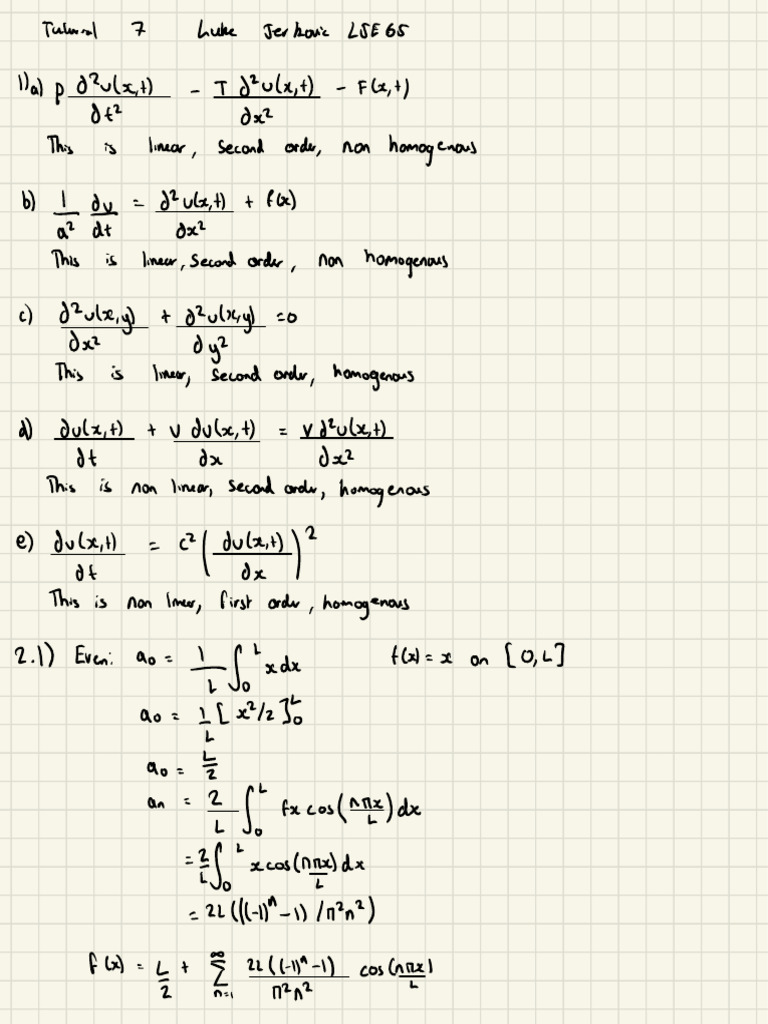 Tutorial 7 Luke Jerkovic LSE65
1)a) ρ ∂²u(x,t)/∂t² - T ∂²u(x,t)/∂x² - F(x,t)
This is linear, second order, non homogenous
b) 1/a² ∂u/∂t = ∂²u(x,t)/∂x² + f(x)
This is linear, second order, non homogenous
c) ∂²u(x,y)/∂x² + ∂²u(x,y)/∂y² = 0
This is linear, second order, homogenous
d) ∂u(x,t)/∂t + v ∂u(x,t)/∂x = v ∂²u(x,t)/∂x²
This is non linear, second order, homogenous
e) ∂u(x,t)/∂t = c² (∂u(x,t)/∂x)²
This is non linear, first order, homogenous
2.1) Even: a₀ = 1/L ∫₀ᴸ x dx f(x) = x on [0,L]
a₀ = 1/L [x²/2]₀ᴸ
a₀ = L/2
an = 2/L ∫₀ᴸ fx cos(nπx/L) dx
= 2/L ∫₀ᴸ x cos(nπx/L) dx
= 2L(((-1)ⁿ - 1)/π²n²)
f(x) = L/2 + Σ_{n=1}^{∞} 2L((-1)ⁿ-1)/π²n² cos(nπx/L)